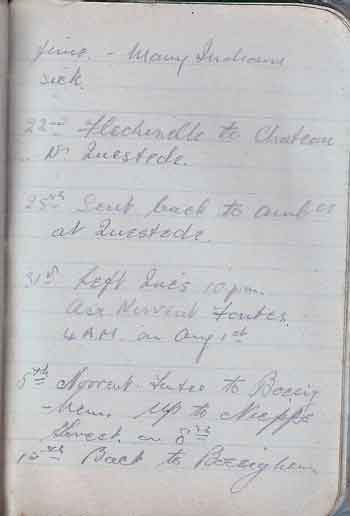 fine. - Many Indians
sick.
22nd Flechinelle to Chateau
Nr Questede.
25th Sent back to amb ce
at Questede.
31st Left Ques 10 pm.
Arr Norrent Fontes.
4 AM. on Aug 1st
5th Norrent-Fontes to Boesig
-hem. Up to Nieppe
Forest on 8th
Back to Boesighem